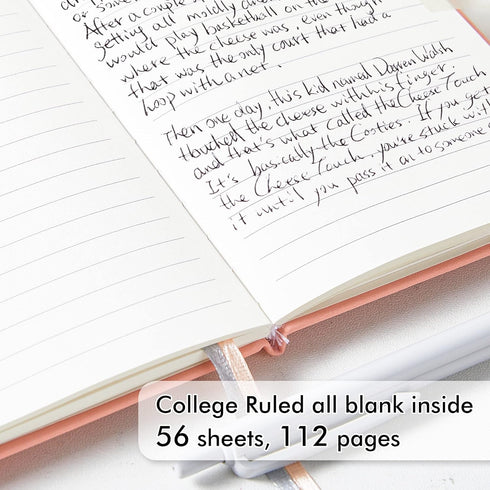 After a couple
getting all moldy and
would play basketball on the
where the cheese was, even though
that was the only court that had a
hoop with a net.
Then one day, this kid named Darren Walsh
touched the cheese with his finger,
and that's what called the Cheese Touch
It's basically the Cooties. If you get
the Cheese Touch, you're stuck with
it until you pass it on to someone
College Ruled all blank inside
56 sheets, 112 pages